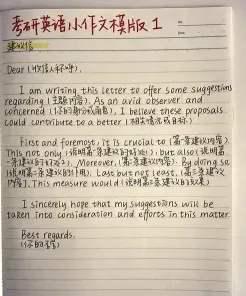 考研英语小作文模版1
No.
Date
建议信
Dear (收信人称呼),
I am writing this letter to offer some suggestions
regarding (主题内容). As an avid observer and
concerned (你的身份或角色), I believe these proposals
could contribute to a better (相关情况或目标).
First and foremost, it is crucial to (第一条建议内容).
This not only (说明第一条建议的好处1), but also (说明第
一条建议的好处2). Moreover, (第二条建议内容). By doing so,
(说明第二条建议的作用). Last but not least, (第三条建议
内容). This measure would (说明第三条建议的效果)
I sincerely hope that my suggestions will be
taken into consideration and efforts in this matter.
Best regards.
(你的名字)